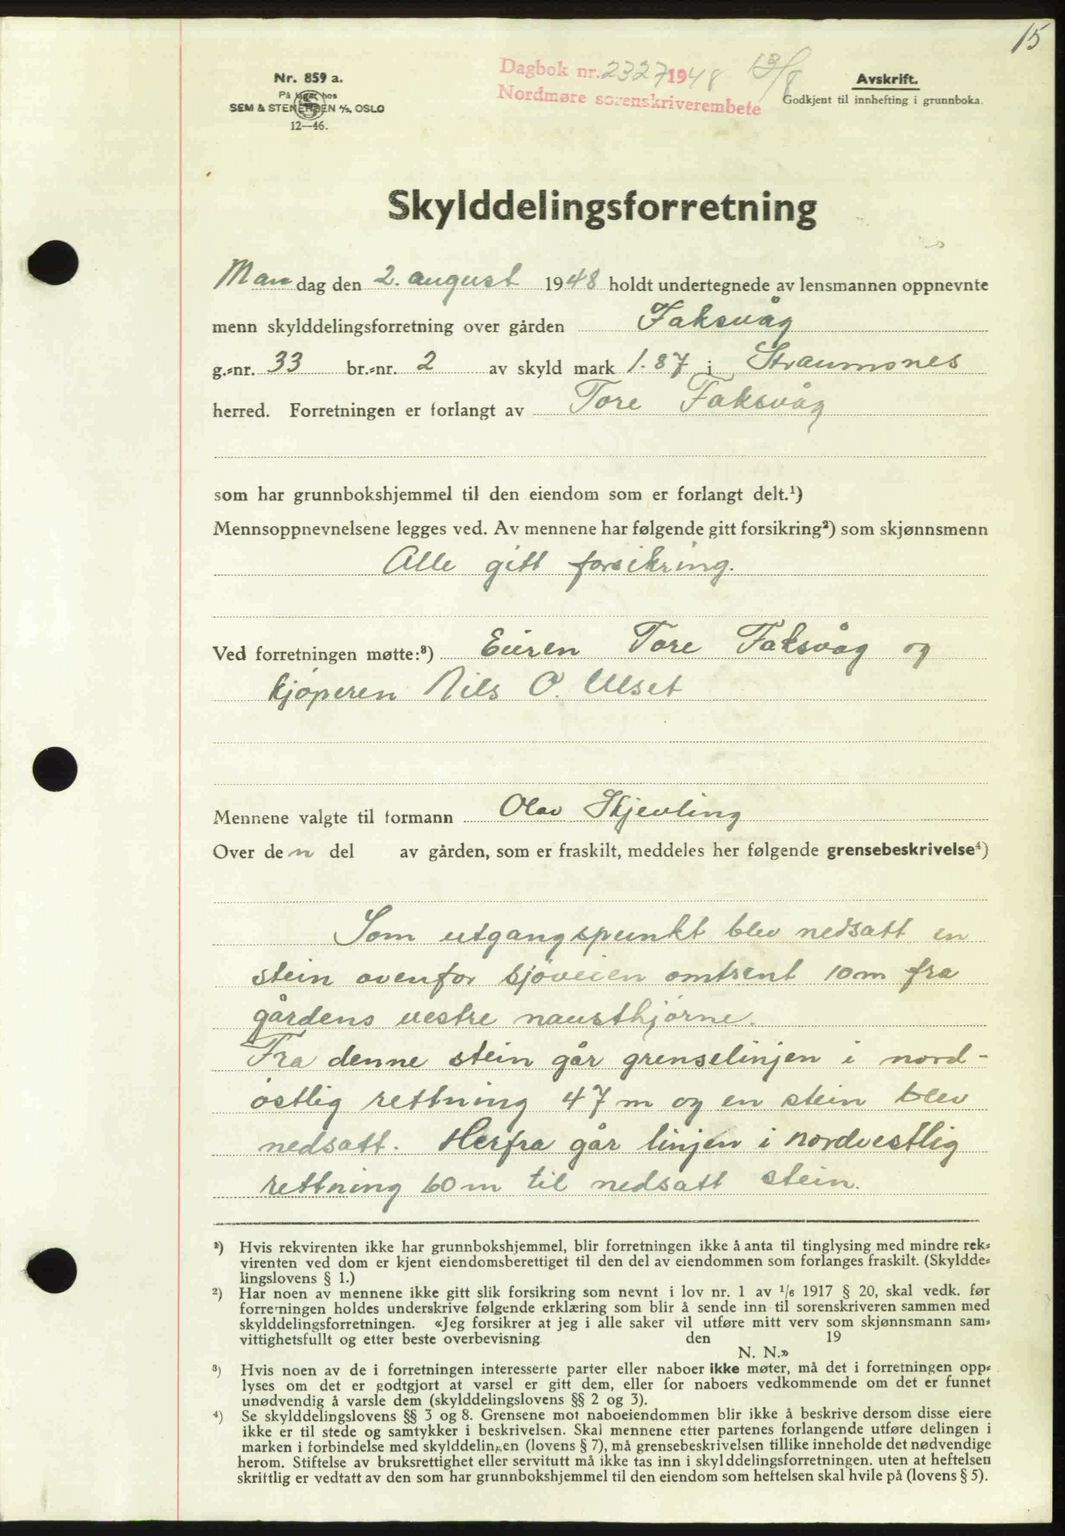 15
Nr. 859 a.
På lager hos
SEM & STENERSEN A/S, OSLO
12—46.
Dagbok nr. 2327 1948 13/8
Nordmøre sorenskriverembete
Avskrift.
Godkjent til innhefting i grunnboka.
Skylddelingsforretning
Mandag den 2. august 1948 holdt undertegnede av lensmannen oppnevnte
menn skylddelingsforretning over gården Faksvåg
g.-nr. 33 br.-nr. 2 av skyld mark 1.87 i Straumsnes
herred. Forretningen er forlangt av Tore Faksvåg
som har grunnbokshjemmel til den eiendom som er forlangt delt.¹)
Mennsoppnevnelsene legges ved. Av mennene har følgende gitt forsikring²) som skjønnsmenn
Alle gitt forsikring.
Ved forretningen møtte:³) Eieren Tore Faksvåg og
kjøperen Nils O. Ulset
Mennene valgte til formann Olav Skjevling
Over den del av gården, som er fraskilt, meddeles her følgende grensebeskrivelse⁴)
Som utgangspunkt blev nedsatt en
stein ovenfor sjøveien omtrent 10 m fra
gårdens vestre nausthjørne.
Fra denne stein går grenselinjen i nord-
østlig rettning 47 m og en stein blev
nedsatt. Herfra går linjen i nordvestlig
rettning 60 m til nedsatt stein.
¹) Hvis rekvirenten ikke har grunnbokshjemmel, blir forretningen ikke å anta til tinglysing med mindre rek-
virenten ved dom er kjent eiendomsberettiget til den del av eiendommen som forlanges fraskilt. (Skyldde-
lingslovens § 1.)
²) Har noen av mennene ikke gitt slik forsikring som nevnt i lov nr. 1 av 1/6 1917 § 20, skal vedk. før
forretningen holdes underskrive følgende erklæring som blir å sende inn til sorenskriveren sammen med
skylddelingsforretningen. «Jeg forsikrer at jeg i alle saker vil utføre mitt verv som skjønnsmann sam-
vittighetsfullt og etter beste overbevisning den 19
N. N.»
³) Hvis noen av de i forretningen interesserte parter eller naboer ikke møter, må det i forretningen opp-
lyses om det er godtgjort at varsel er gitt dem, eller for naboers vedkommende om det er funnet
unødvendig å varsle dem (skylddelingslovens §§ 2 og 3).
⁴) Se skylddelingslovens §§ 3 og 8. Grensene mot naboeiendommen blir ikke å beskrive dersom disse eiere
ikke er til stede og samtykker i beskrivelsen. Skal mennene etter partenes forlangende utføre delingen i
marken i forbindelse med skylddelingen (lovens § 7), må grensebeskrivelsen tillike inneholde det nødvendige
herom. Stiftelse av bruksrettighet eller servitutt må ikke tas inn i skylddelingsforretningen, uten at heftelsen
skriftlig er vedtatt av den som har grunnbokshjemmel til den eiendom som heftelsen skal hvile på (lovens § 5).